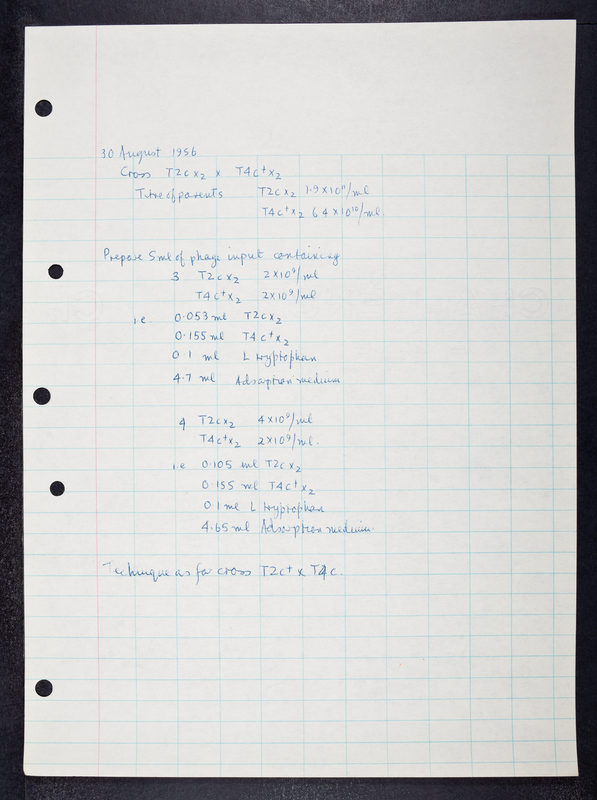 30 August 1956
Cross T2cx₂ x T4c⁺x₂
Titre of parents T2cx₂ 1.9x10¹¹/ml
T4c⁺x₂ 6.4x10¹⁰/ml.
Prepare 5ml of phage input containing
3 T2cx₂ 2x10⁹/ml
T4c⁺x₂ 2x10⁹/ml
i.e. 0.053 ml T2cx₂
0.155 ml T4c⁺x₂
0.1 ml L tryptophan
4.7 ml Adsorption medium
4 T2cx₂ 4x10⁹/ml
T4c⁺x₂ 2x10⁹/ml.
i.e 0.105 ml T2cx₂
0.155 ml T4c⁺x₂
0.1 ml L tryptophan
4.65 ml Adsorption medium.
Technique as for cross T2c⁺ x T4c.